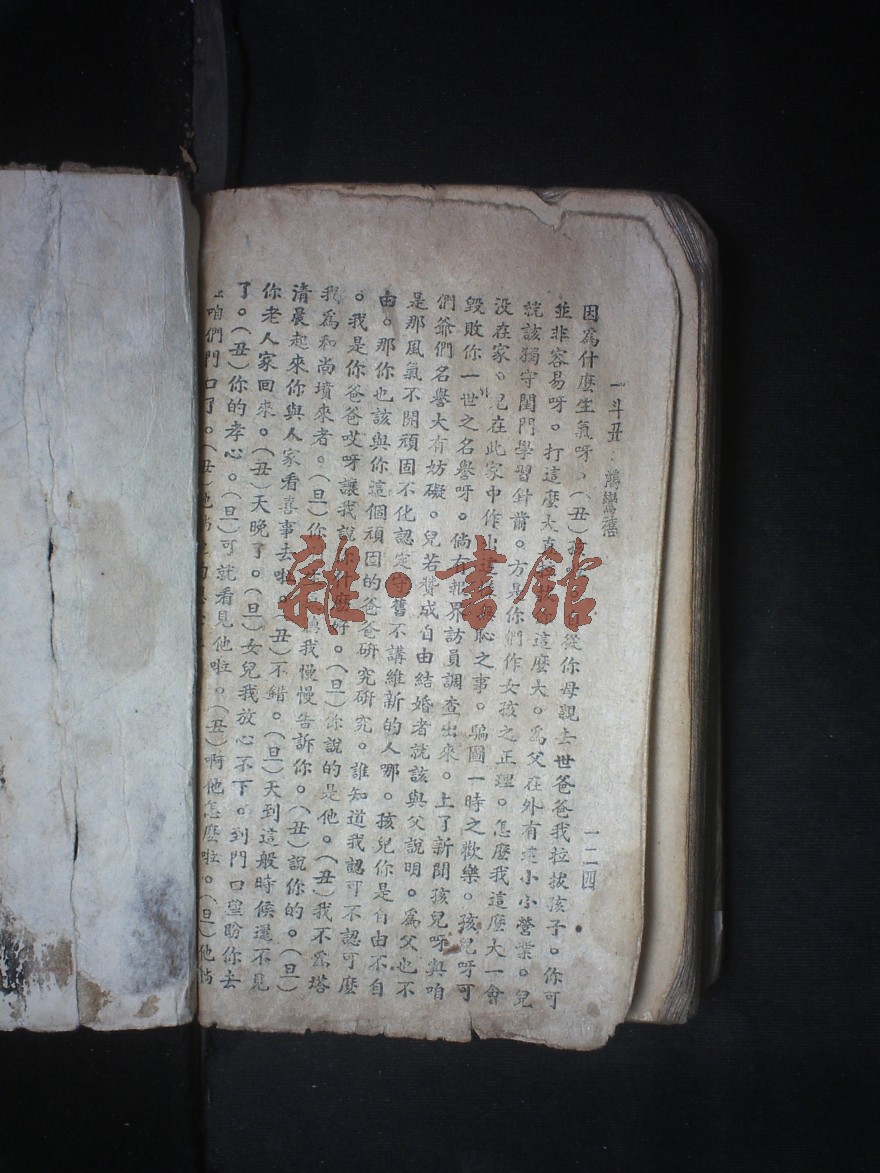 一斗丑 鴻鸞禧 一二四
因爲什麽生氣呀。(丑)孩 從你母親去世爸爸我拉拔孩子。你可
並非容易呀。打這麽大 這麽大。爲父在外有這小小營業。兒
就該獨守閨門學習針黹。方是你們作女孩之正理。怎麽我這麽大一會
没在家。兒在此家中作出這 恥之事。騙圖一時之歡樂。孩兒呀可
毀敗你一世之名譽呀。倘有報界訪員調查出來。上了新聞孩兒呀與咱
們爺們名譽大有妨礙。兒若贊成自由結婚者就該與父說明。爲父也不
是那風氣不開頑固不化認定守舊不講維新的人哪。孩兒你是自由不自
由。那你也該與你這個頑固的爸爸研究研究。誰知道我認可不認可麽
。我是你爸爸哎呀讓我說你什麽好。(旦)你說的是他。(丑)我不爲塔
我爲和尚墳來者。(旦)你 聽我慢慢告訴你。(丑)說你的。(旦)
清晨起來你與人家看喜事去啦。(丑)不錯。(旦)天到這般時候還不見
你老人家回來。(丑)天晚了。(旦)女兒我放心不下。到門口望盼你去
了。(丑)你的孝心。(旦)可就看見他啦。(丑)啊他怎麽啦。(旦)他倘
咱們門口了。(丑)他倘
雜·書館